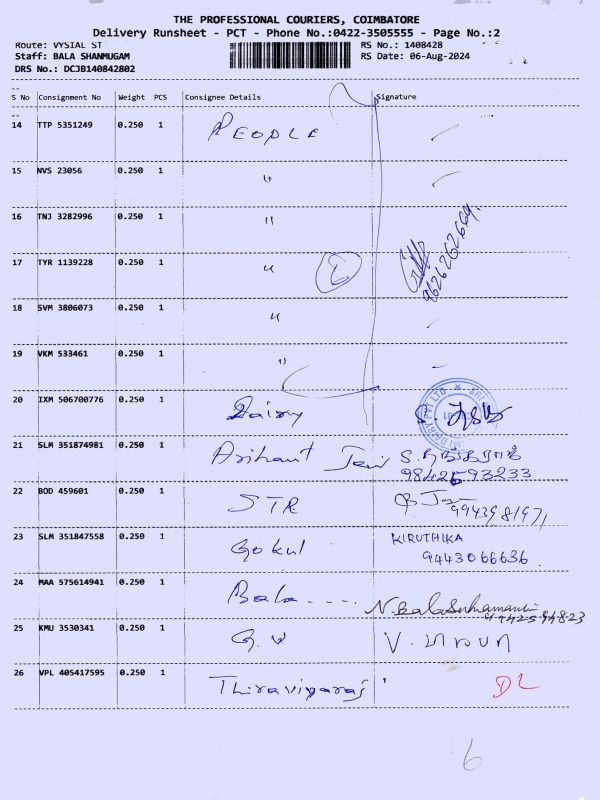 THE PROFESSIONAL COURIERS, COIMBATORE
Delivery Runsheet - PCT - Phone No.:0422-3505555 - Page No.:2
Route: VYSIAL ST RS No.: 1408428
Staff: BALA SHANMUGAM RS Date: 06-Aug-2024
DRS No.: DCJB140842802
S No Consignment No Weight PCS Consignee Details Signature
14 TTP 5351249 0.250 1 PEOPLE
15 NVS 23056 0.250 1 "
16 TNJ 3282996 0.250 1 "
17 TYR 1139228 0.250 1 " 9626262669.
18 SVM 3806073 0.250 1 "
19 VKM 533461 0.250 1 "
20 IXM 506700776 0.250 1 Dairy
21 SLM 351874981 0.250 1 Arihant Jain
9842593233
22 BOD 459601 0.250 1 STR 9943981971
23 SLM 351847558 0.250 1 Gokul KIRUTHIKA
9443066636
24 MAA 575614941 0.250 1 Bala.... N. Balasubramani
25 KMU 3530341 0.250 1 G.V
26 VPL 405417595 0.250 1 Thiraviyaraj DL
6